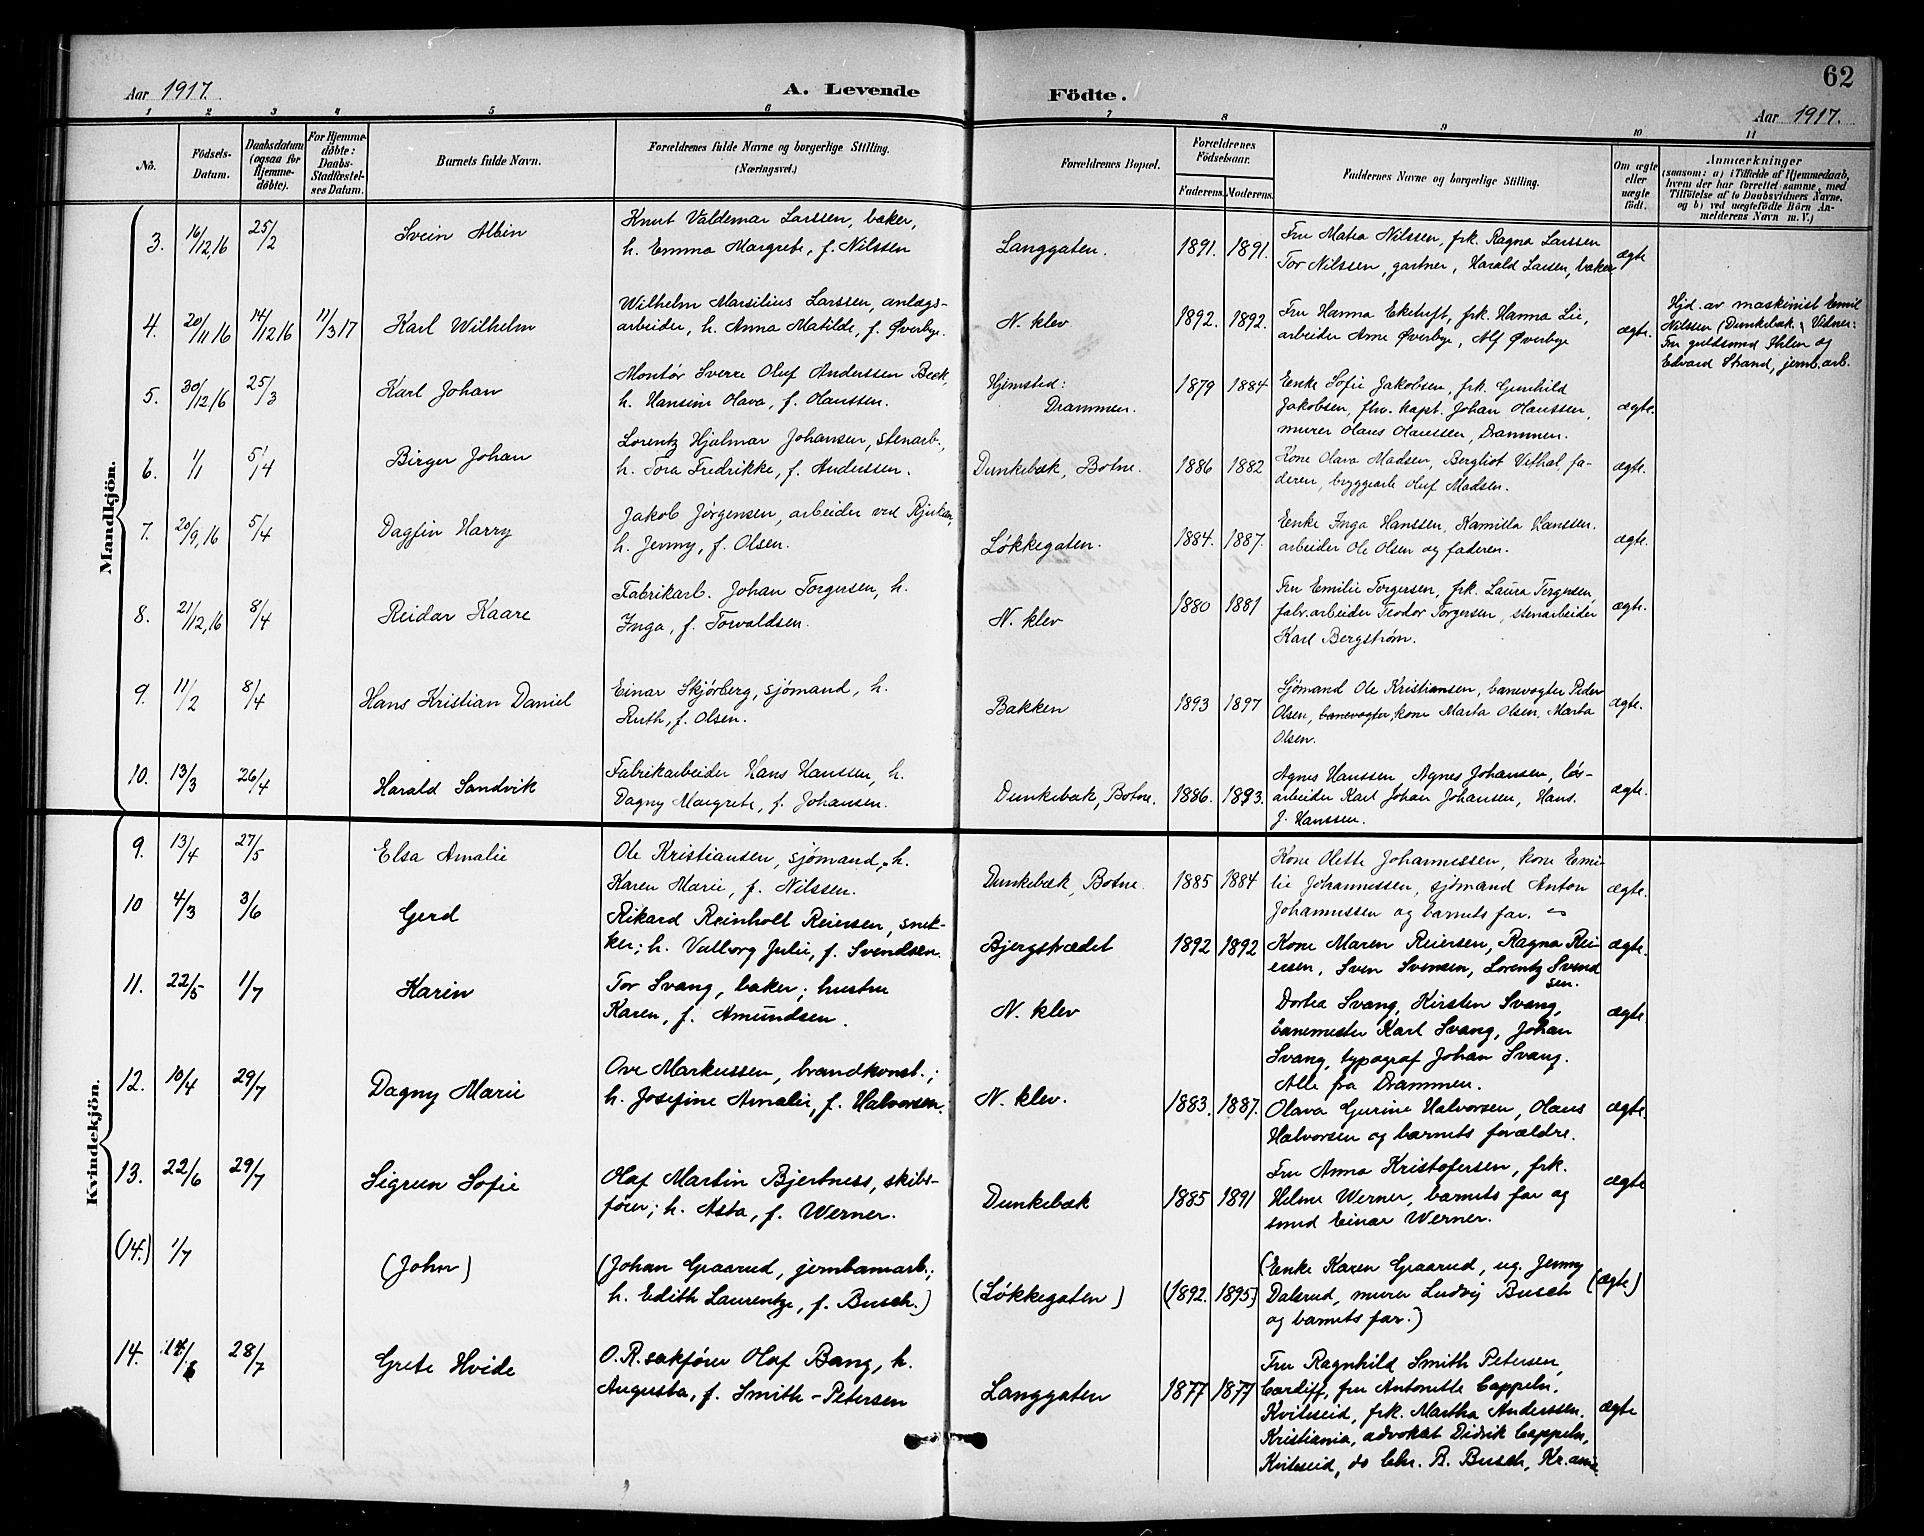 62
Aar 1917. A. Levende Födte. Aar 1917.
1 2 3 4 5 6 7 8 9 10 11
No. Födsels-Datum. Daabsdatum (ogsaa for Hjemmedøbte). For Hjemmedøbte: Daabs-Stadfæstelses Datum. Barnets fulde Navn. Forældrenes fulde Navne og borgerlige Stilling. (Næringsvei.) Forældrenes Bopæl. Forældrenes Födselsaar. Faderens. Moderens. Faddernes Navne og borgerlige Stilling. Om ægte eller uægte født. Anmærkninger (saasom: a) i Tilfælde af Hjemmedaab, hvem der har forrettet samme, med Tilföielse af to Daabsvidners Navne, og b) ved uægtefödte Börn Anmelderens Navn m. V.)
Mandkjön.
3. 16/12,16 25/2 Svein Albin Knut Valdemar Larssen, baker,
h. Emma Margrete, f. Nilssen Langgaten. 1891. 1891. Fru Matea Nilssen, frk. Ragna Larssen
Tor Nilssen, gartner, Harald Larsen, baker ægte
4. 20/11 16 14/12 16 11/3 17 Karl Wilhelm Wilhelm Marsilius Larssen, anlægs-
arbeider, h. Anna Matilde, f. Øverbye. N. klev 1892. 1892. Fru Hanna Eketuft, frk. Hanna Lie,
arbeider Arne Øverbye, Alf Øverbye ægte.
Hjd. av maskinist Emil
Nilssen (Dunkebæk. Vidner:
Fru guldsmed Ihlen og
Edvard Strand, jernb.arb.
5. 30/12,16 25/3 Karl Johan Montør Sverre Oluf Anderssen Beck,
h. Hansine Olava, f. Hanssen. Hjemsted:
Drammen. 1879 1884 Enke Sofie Jakobsen, frk. Gunhild
Jakobsen, fhv. kapt. Johan Hanssen,
murer Olaus Hanssen, Drammen. ægte.
6. 1/1 5/4 Birger Johan Lorentz Hjalmar Johansen, stenarb.,
h. Tora Fredrikke, f. Anderssen. Dunkebæk, Botne. 1886 1882 Kone Olava Madsen, Bergliot Vethal, fa-
deren, bryggearb. Oluf Madsen. ægte.
7. 20/9,16 5/4 Dagfin Harry Jakob Jørgensen, arbeider ved Rjukan,
h. Jenny, f. Olsen. Løkkegaten. 1884. 1887. Enke Inga Hanssen, Kamilla Hanssen.
arbeider Ole Olsen og faderen. ægte.
8. 21/12,16 8/4 Reidar Kaare Fabrikarb. Johan Torgersen, h.
Inga, f. Torvaldsen. N. klev 1880 1881 Fru Emilie Torgersen, frk. Laura Torgersen,
fabr.arbeider Teodor Torgersen, stenarbeider
Karl Bergstrøm. ægte.
9. 11/2 8/4 Hans Kristian Daniel Einar Skjørberg, sjømand, h.
Ruth, f. Olsen. Bakken 1893 1897 Sjømand Ole Kristiansen, banevogter Peder
Olsen, banevogter, kone Marta Olsen, Marta
Olsen. ægte.
10. 13/3 26/4 Harald Sandvik Fabrikarbeider Hans Hanssen, h.
Dagny Margrete, f. Johansen. Dunkebæk, Botne. 1886. 1893. Agnes Hanssen, Agnes Johansen, løs-
arbeider Karl Johan Johansen, Hans
J. Hanssen. ægte.
Kvindekjön.
9. 13/4 27/5 Elsa Amalie Ole Kristiansen, sjømand, h.
Karen Marie, f. Nilssen. Dunkebæk, Botne. 1885 1884 Kone Olette Johannessen, kone Emi-
lie Johannessen, sjømand Anton
Johannessen og barnets far. ægte.
10 4/3 3/6 Gerd Rikard Reinholt Reiersen, snek-
ker; h. Valborg Julie, f. Svendsen. Bjergstrædet 1892 1892 Kone Maren Reiersen, Ragna Rei-
ersen, Sven Svensen, Lorentz Svend
sen. ægte.
11. 22/5 1/7 Karin Tor Svang, baker; hustru
Karen, f. Amundsen. N. klev Dortea Svang, Kirsten Svang,
banemester Karl Svang, Johan
Svang, typograf Johan Svang.
Alle fra Drammen. ægte
12. 10/4 29/7 Dagny Marie Ove Markussen, brandkonst.;
h. Josefine Amalie, f. Halvorsen. N. klev. 1883. 1887. Olava Gurine Halvorsen, Olaus
Halvorsen og barnets forældre. ægte
13. 22/6 29/7 Sigrun Sofie Olaf Martin Bjertness, skibs-
fører; h. Asta, f. Werner. Dunkebæk 1885 1891 Fru Anna Kristofersen, frk.
Helene Werner, barnets far og
smed Einar Werner. ægte
(14.) 1/7 (John) (Johan Graarud, jernbanearb.;
h. Edith Laurentze, f. Busch.) (Løkkegaten) (1892. 1895) (Enke Karen Graarud, ug. Jenny
Dalsrud, murer Ludvig Busch
og barnets far.) (ægte)
14. 28/7 Grete Hvide O.R.sakfører Olaf Bang, h.
Augusta, f. Smith-Petersen Langgaten 1877 1877 Fru Ragnhild Smith Petersen,
Cardiff, fru Antonette Cappeln.
Kviteseid, frk. Martha Anderssen.
Kristiania, advokat Didrik Cappeln,
Kviteseid, do Chr. B. Busch, Kr.ania ægte